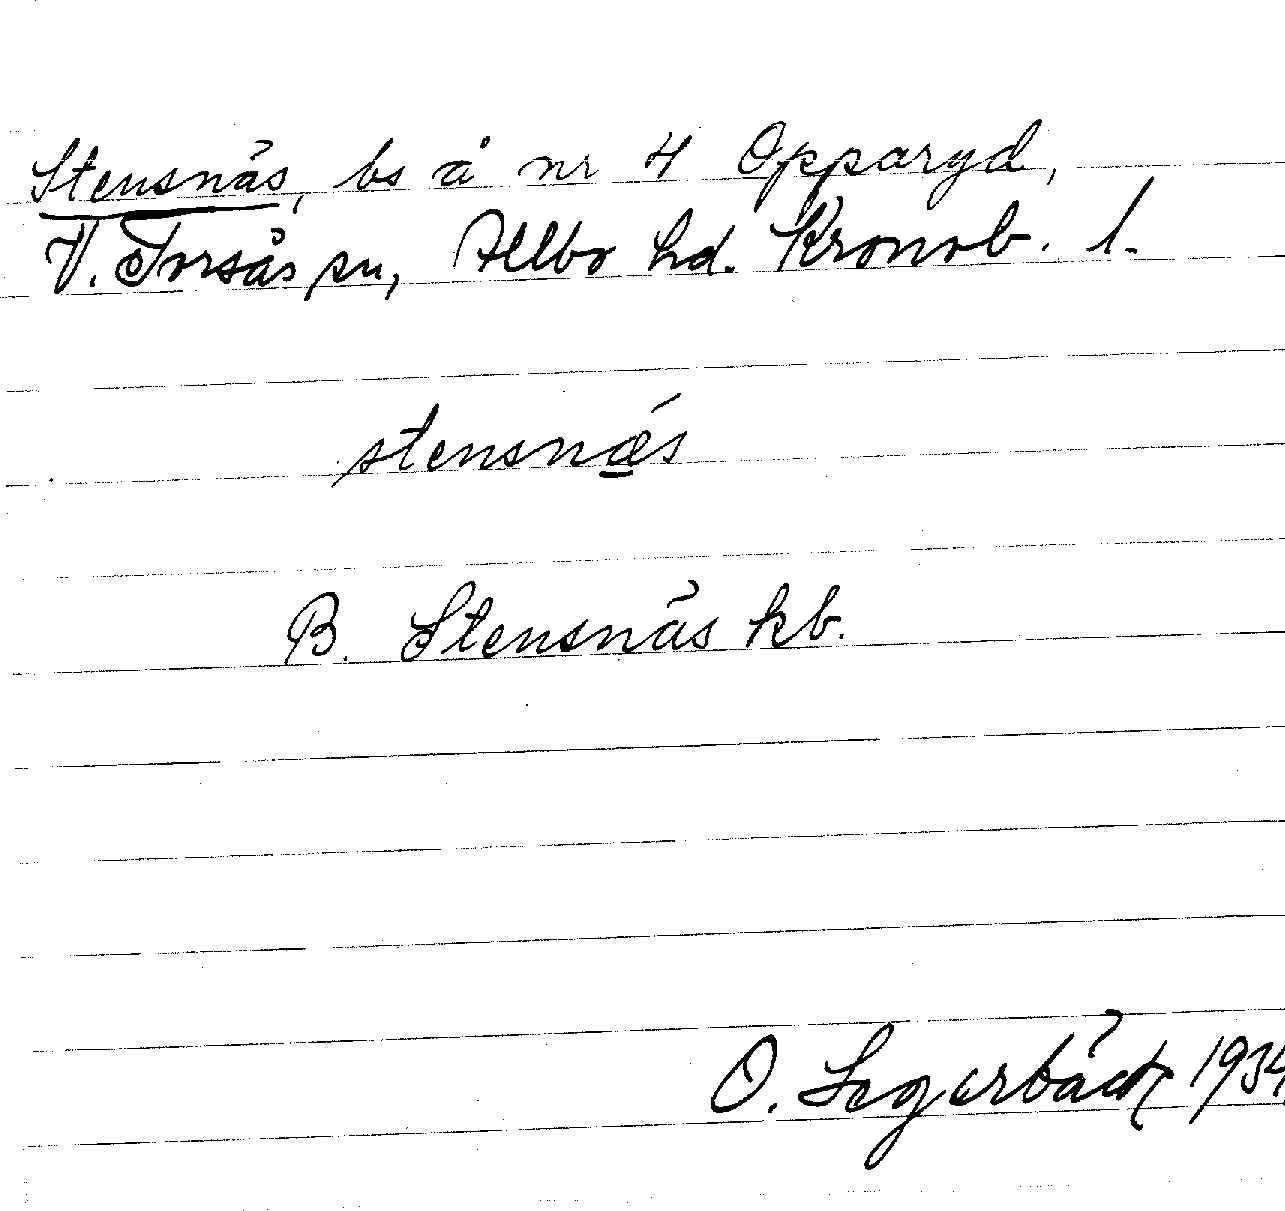 Stensnäs, bs å nr 4 Opparyd,
V. Torsås sn, Allbo hd. Kronob. l.
stensnǽs
B. Stensnäs kb.
O. Segerbäck 1934